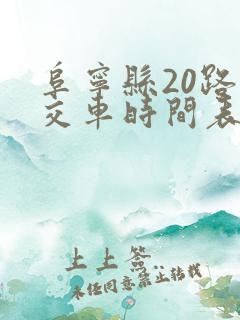 阜寧縣20路
交車時間表
上上簽
未经同意禁止转载